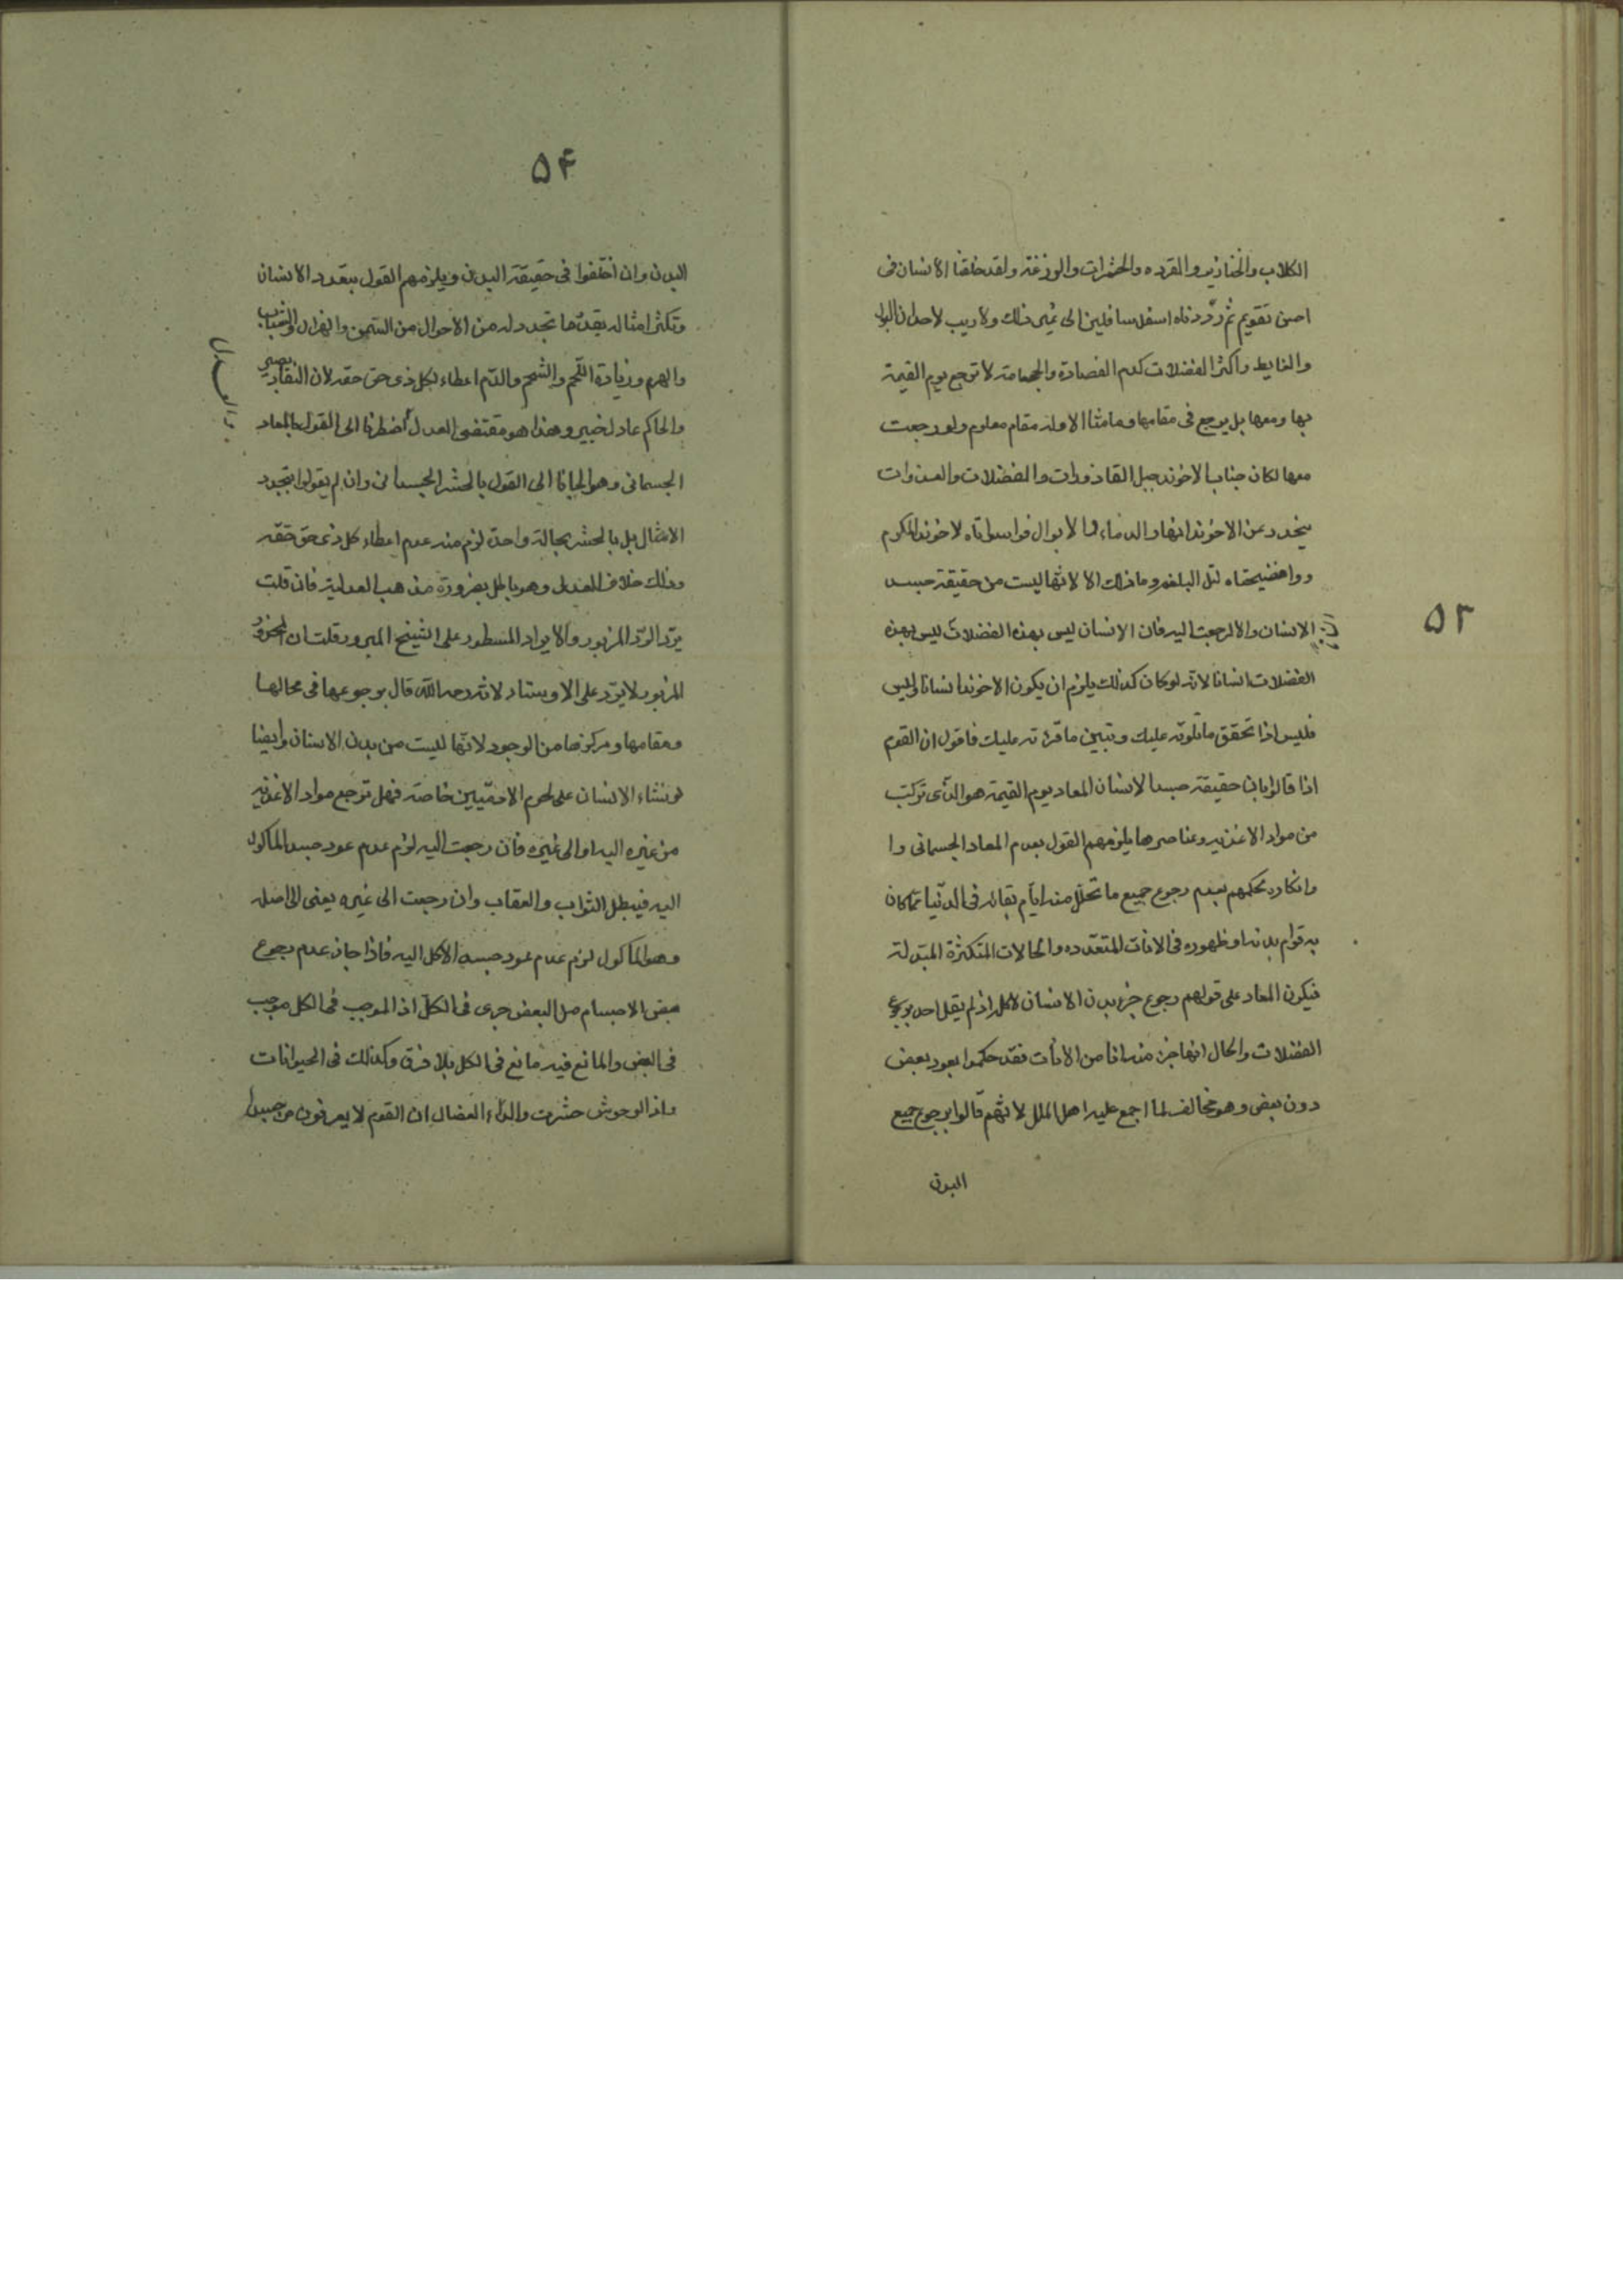 ۵۳
الكلاب والخنازير والقرده والحشرات والوزغة ولقد خلقنا الانسان فى
احسن تقويم ثم رددناه اسفل سافلين الى غير ذلك ولا ريب لاحد ان البول
والغايط واكثر الفضلات كدم الفصادة والحجامة لا ترجع يوم القيمة
بها ومعها بل يرجع فى مقامها وما منا الا وله مقام معلوم ولو رجعت
معها لكان جناب الاخوند جبل القاذورات والفضلات والعذرات
ينحدر عن الاخوند انهار الدماء والابوال فواسواتاه لاخوند المكرم
ووافضيحتاه وما ذلك الا لانها ليست من حقيقة جسد
الانسان والا لرجعت اليه فان الانسان ليس بهذه الفضلات ليس بهذه
الفضلات انسانا لانه لو كان كذلك يلزم ان يكون الاخوند انسانا وليس
فليس اذا تحقق ما تلوته عليك وتبين ما قرأته عليك فاقول ان القوم
اذا قالوا بان حقيقة جسد الانسان المعاد يوم القيمة هو الذى تركب
من مواد الاغذيه وعناصرها يلزمهم القول بعدم المعاد الجسمانى وا
وانكاره لحكمهم بعدم رجوع جميع ما تحلل منه ايام بقائه فى الدنيا مما كان
به قوام بدنه او ظهوره فى الانات المتعدده والحالات المتكثرة المتبدلة
فيكون المعاد على قولهم رجوع جزء بدن الانسان لا كله اذ لم يقل احد برجوع
الفضلات والحال انها جزء منه انا من الانات فقد حكموا بعود بعض
دون بعض وهو مخالف لما اجمع عليه اهل الملل لانهم قالوا برجوع جميع
البدن
۵۴
البدن وان اختلفوا فى حقيقة البدن ويلزمهم القول بتعدد الانسان
وتكثر امثاله بقدر ما تجدد له من الاحوال من السمن والهزال والشباب
والهرم وزيادة اللحم والشحم والدم اعطاء لكل ذى حق حقه لان النقاد بصير
والحاكم عادل خبير وهذا هو مقتضى العدل اضطرنا الى القول بالمعاد
الجسمانى وهو الجانا الى القول بالحشر الجسدانى وان لم يقولوا بتجدد
الامثال بل بالحشر بحالة واحدة لزم منه عدم اعطاء كل ذى حق حقه
وذلك خلاف العدل وهو باطل بضرورة مذهب العدلية فان قلت
يرد الرد المزبور والايراد المسطور على الشيخ المبرور قلت ان المحذور
المزبور لا يرد على الاوستاد لانه رحمه الله قال برجوعها فى محالها
ومقامها ومركزها من الوجود لانها ليست من بدن الانسان وايضا
لو نشاء الانسان على لحوم الادميين خاصة فهل ترجع مواد الاغذيه
من غيره اليه او الى غيره فان رجعت اليه لزم عدم عود جسد الماكول
اليه فيبطل الثواب والعقاب وان رجعت الى غيره يعنى الى اصله
وهو الماكول لزم عدم عود جسد الاكل اليه فاذا جاز عدم رجوع
بعض الاجسام بل البعض جرى فى الكل اذ الموجب فى الكل موجب
فى البعض والمانع فيه مانع فى الكل بلا فرق وكذلك فى الحيوانات
واذا الوحوش حشرت والداء العضال ان القوم لا يعرفون من جسد